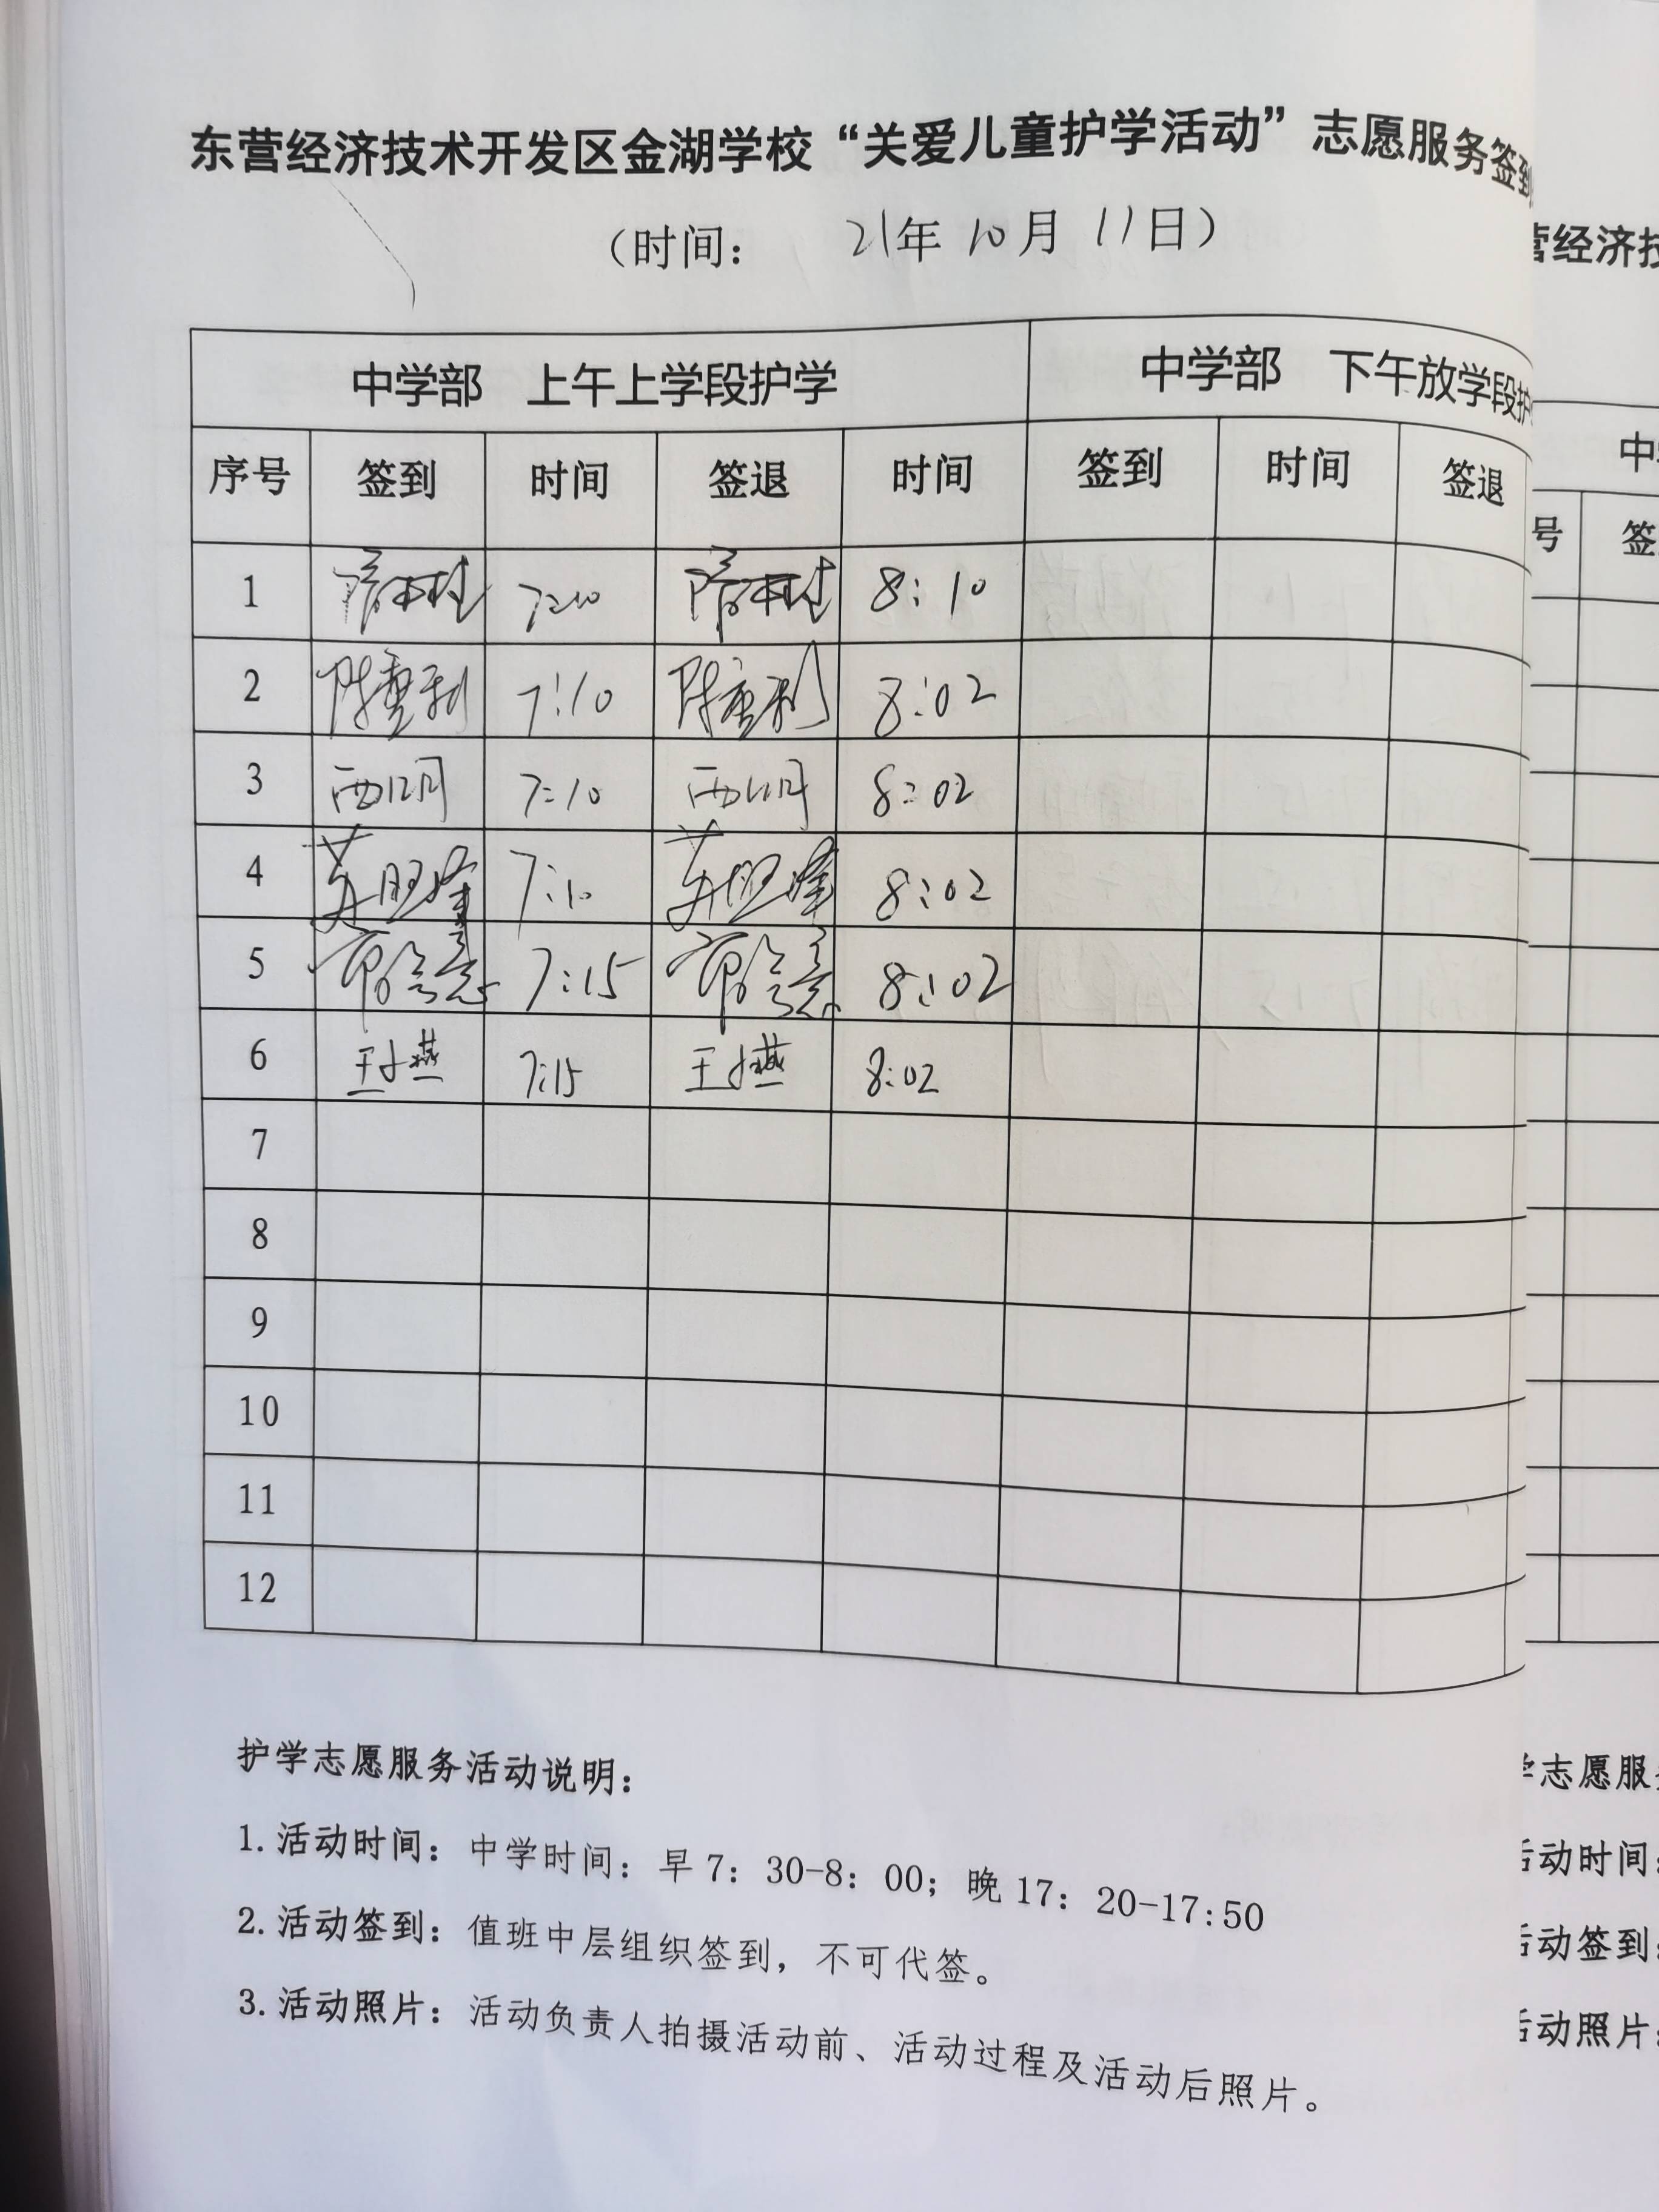 东营经济技术开发区金湖学校“关爱儿童护学活动”志愿服务签到
（时间： 21年 10月 11日）
中学部 上午上学段护学 中学部 下午放学段护
序号 签到 时间 签退 时间 签到 时间 签退
1 8:10
2 陈重利 7:10 陈重利 8:02
3 7:10 8:02
4 7:10 8:02
5 7:15 8:02
6 王小燕 7:15 王小燕 8:02
7
8
9
10
11
12
护学志愿服务活动说明：
1.活动时间：中学时间：早7：30-8：00；晚17：20-17:50
2.活动签到：值班中层组织签到，不可代签。
3.活动照片：活动负责人拍摄活动前、活动过程及活动后照片。
营经济技
中
号 签
学志愿服
活动时间：
活动签到：
活动照片：